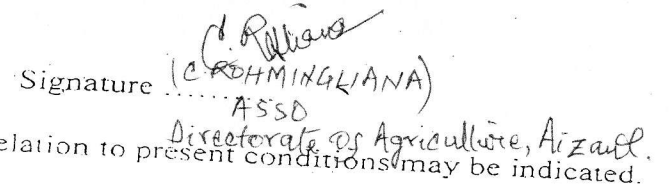 C. Rohliana
Signature ......... (C ROHMINGLIANA)
ASSO
Directorate of Agriculture, Aizawl.
elation to present conditions may be indicated.